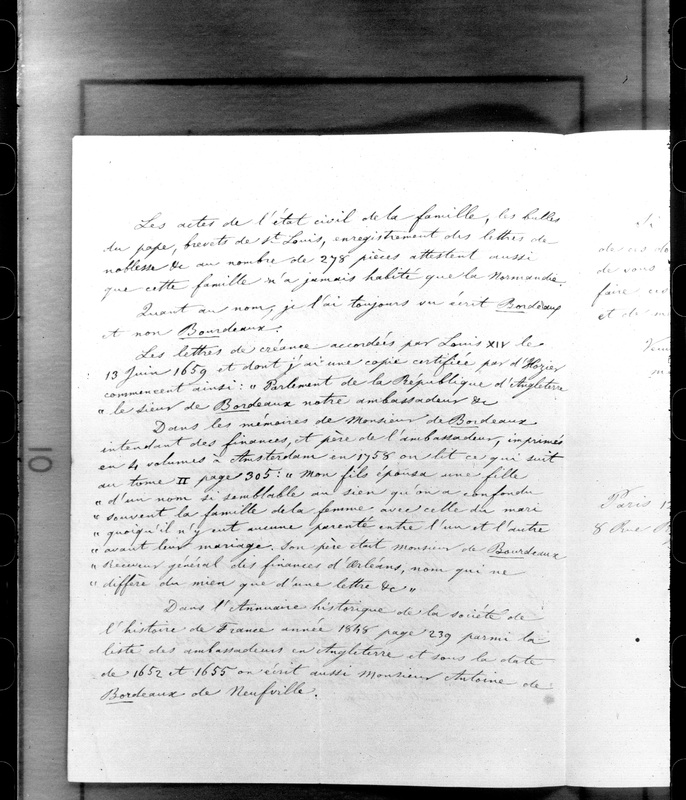 Les actes de l'état civil de la famille, les bulles
du pape, brevets de St Louis, enregistrement des lettres de
noblesse &c au nombre de 278 pièces attestent aussi
que cette famille n'a jamais habité que la Normandie.
Quant au nom, je l'ai toujours vu écrit Bordeaux
et non Bourdeaux.
Les lettres de créance accordées par Louis XIV le
13 Juin 1659 et dont j'ai une copie certifiée par d'Hozier
commencent ainsi: " Parlement de la République d'Angleterre
" le sieur de Bordeaux notre ambassadeur &c
Dans les mémoires de Monsieur de Bordeaux
intendant des finances, et père de l'ambassadeur, imprimés
en 4 volumes à Amsterdam en 1758 on lit ce qui suit
au tome II page 305: " Mon fils épousa une fille
" d'un nom si semblable au sien qu'on a confondu
" souvent la famille de la femme avec celle du mari
" quoiqu'il n'y eut aucune parenté entre l'un et l'autre
" avant leur mariage. Son père était Monsieur de Bourdeaux
" Receveur général des finances d'Orléans, nom qui ne
" diffère du mien que d'une lettre &c "
Dans l'Annuaire historique de la société de
l'histoire de France année 1848 page 239 parmi la
liste des ambassadeurs en Angleterre et sous la date
de 1652 et 1655 on écrit aussi Monsieur Antoine de
Bordeaux de Neufville.
Si
de vous
faire
et de
Paris
8 Rue
10